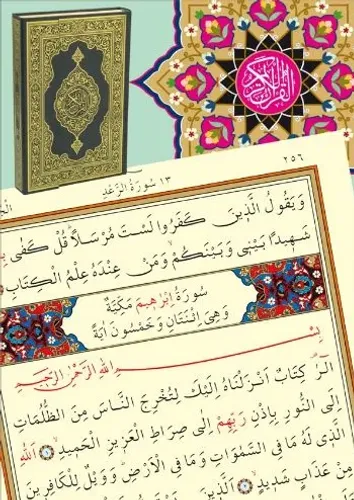 القرآن الكريم
١٣ سورة الرعد
٢٥٦
وَيَقُولُ الَّذِينَ كَفَرُوا لَسْتَ مُرْسَلًا قُلْ كَفَى
شَهِيدًا بَيْنِي وَبَيْنَكُمْ وَمَنْ عِنْدَهُ عِلْمُ الْكِتَابِ
سُورَةُ اِبْرٰهِيمَ مَكِّيَّةٌ
وَهِىَ اِثْنَتَانِ وَخَمْسُونَ اٰيَةً
بِسْمِ اللهِ الرَّحْمٰنِ الرَّحِيمِ
الٓرٰ كِتَابٌ اَنْزَلْنَاهُ اِلَيْكَ لِتُخْرِجَ النَّاسَ مِنَ الظُّلُمَاتِ
اِلَى النُّورِ بِاِذْنِ رَبِّهِمْ اِلَى صِرَاطِ الْعَزِيزِ الْحَمِيدِ ۝١ اَللهِ
الَّذِى لَهُ مَا فِى السَّمٰوَاتِ وَمَا فِى الْاَرْضِ وَوَيْلٌ لِلْكَافِرِينَ
مِنْ عَذَابٍ شَدِيدٍ ۝٢ اَلَّذِينَ